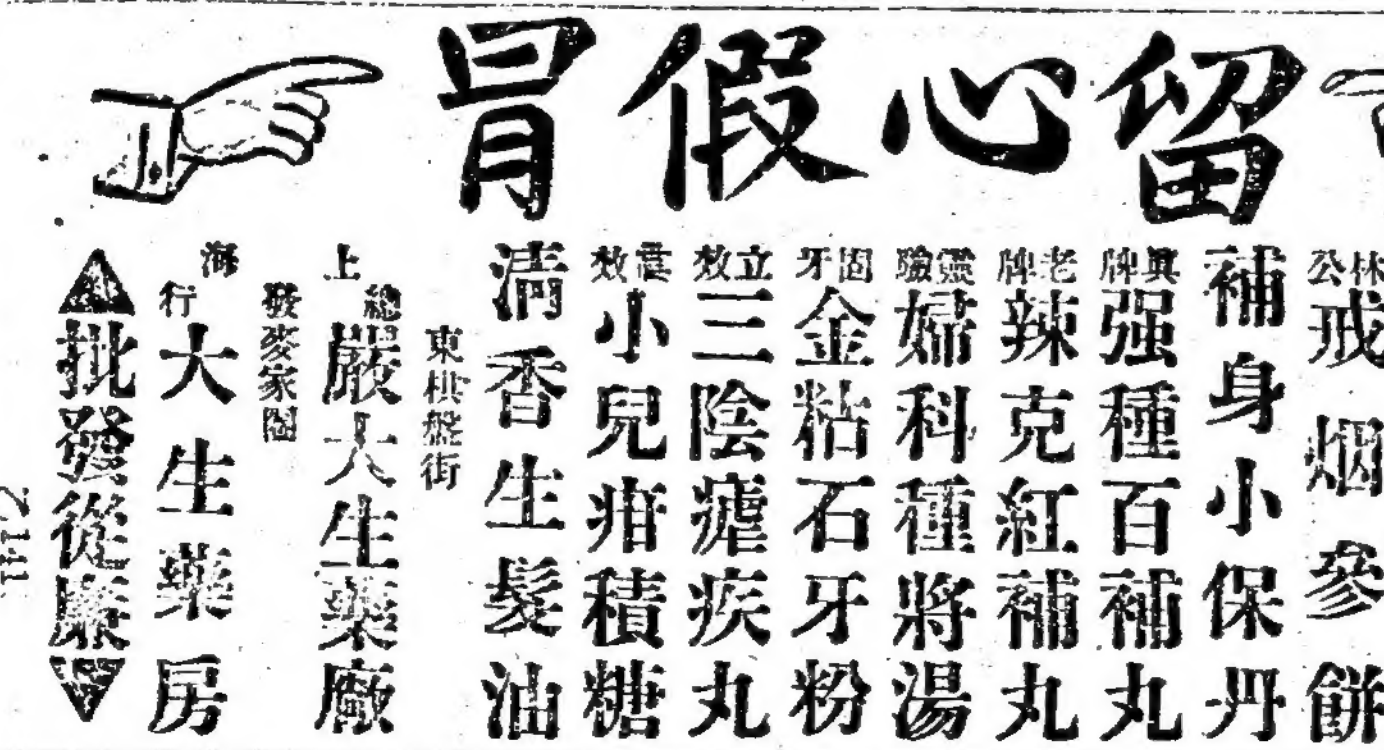 留心假冒
林公戒烟參餅
補身小保丹
真牌强種百補丸
老牌辣克紅補丸
靈驗婦科種將湯
固牙金粘石牙粉
立效三陰瘧疾丸
舊效小兒疳積糖
清香生髮油
東棋盤街
上總嚴大生藥廠
發麥家圈
海行大生藥房
批發從廉